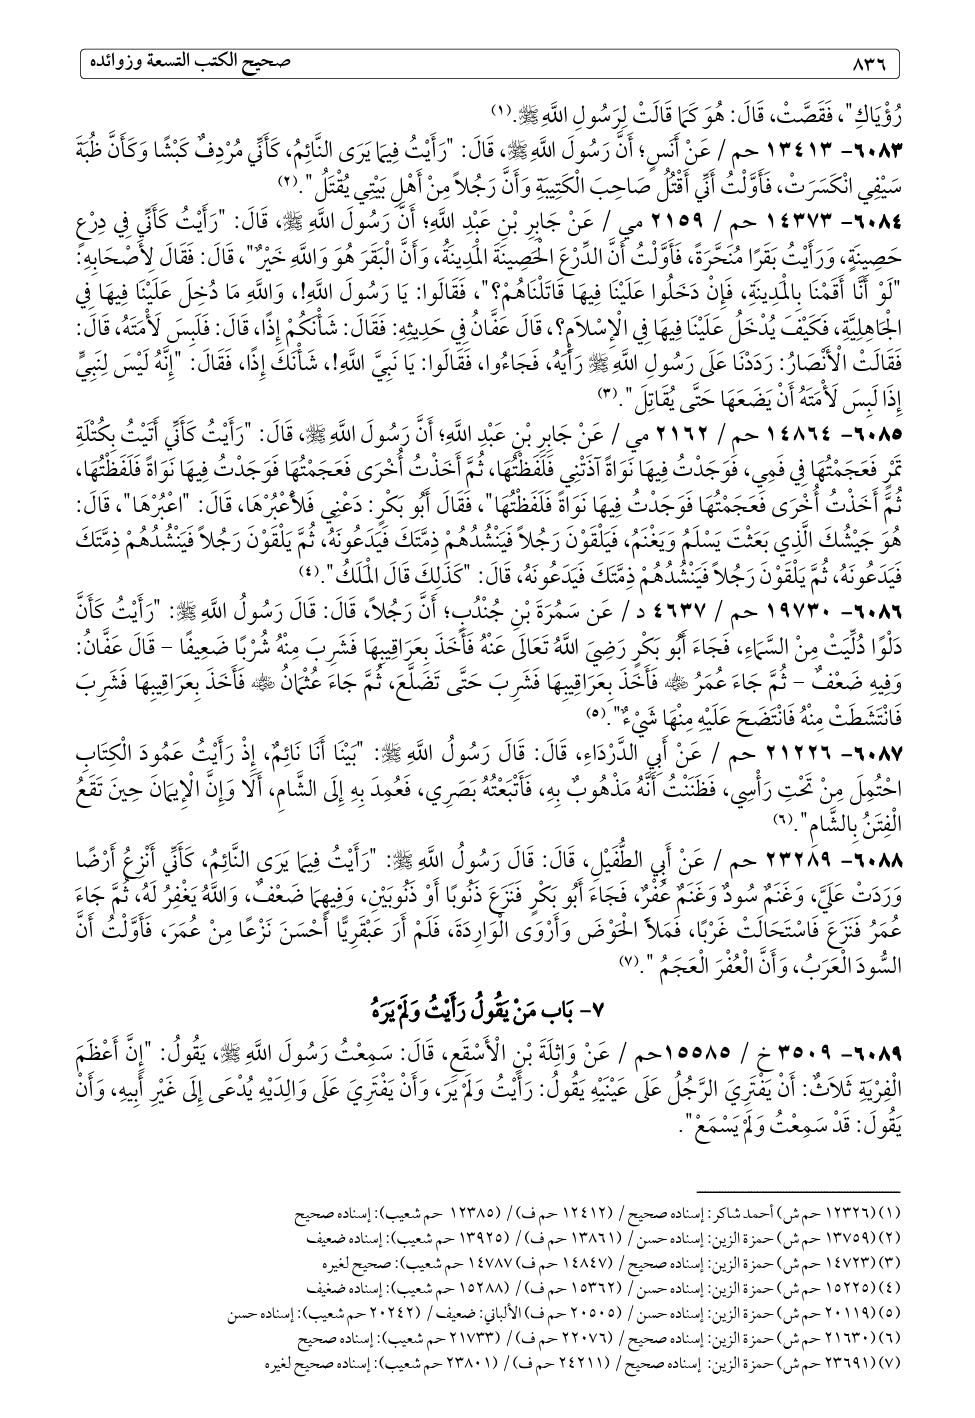 ٨٣٦ صحيح الكتب التسعة وزوائده
رُؤْيَاكِ"، فَقَصَّتْ، قَالَ: هُوَ كَمَا قَالَتْ لِرَسُولِ اللَّهِ ﷺ.(١)
٦٠٨٣- ١٣٤١٣ حم / عَنْ أَنَسٍ؛ أَنَّ رَسُولَ اللَّهِ ﷺ، قَالَ: "رَأَيْتُ فِيمَا يَرَى النَّائِمُ، كَأَنِّي مُرْدِفٌ كَبْشًا وَكَأَنَّ ظُبَةَ
سَيْفِي انْكَسَرَتْ، فَأَوَّلْتُ أَنِّي أَقْتُلُ صَاحِبَ الْكَتِيبَةِ وَأَنَّ رَجُلاً مِنْ أَهْلِ بَيْتِي يُقْتَلُ".(٢)
٦٠٨٤- ١٤٣٧٣ حم / ٢١٥٩ مي / عَنْ جَابِرِ بْنِ عَبْدِ اللَّهِ؛ أَنَّ رَسُولَ اللَّهِ ﷺ، قَالَ: "رَأَيْتُ كَأَنِّي فِي دِرْعٍ
حَصِينَةٍ، وَرَأَيْتُ بَقَرًا مُنَحَّرَةً، فَأَوَّلْتُ أَنَّ الدِّرْعَ الْحَصِينَةَ الْمَدِينَةُ، وَأَنَّ الْبَقَرَ هُوَ وَاللَّهِ خَيْرٌ"، قَالَ: فَقَالَ لِأَصْحَابِهِ:
"لَوْ أَنَّا أَقَمْنَا بِالْمَدِينَةِ، فَإِنْ دَخَلُوا عَلَيْنَا فِيهَا قَاتَلْنَاهُمْ؟"، فَقَالُوا: يَا رَسُولَ اللَّهِ!، وَاللَّهِ مَا دُخِلَ عَلَيْنَا فِيهَا فِي
الْجَاهِلِيَّةِ، فَكَيْفَ يُدْخَلُ عَلَيْنَا فِيهَا فِي الْإِسْلَامِ؟، قَالَ عَفَّانُ فِي حَدِيثِهِ: فَقَالَ: شَأْنَكُمْ إِذًا، قَالَ: فَلَبِسَ لَأْمَتَهُ، قَالَ:
فَقَالَتْ الْأَنْصَارُ: رَدَدْنَا عَلَى رَسُولِ اللَّهِ ﷺ رَأْيَهُ، فَجَاءُوا، فَقَالُوا: يَا نَبِيَّ اللَّهِ!، شَأْنَكَ إِذًا، فَقَالَ: "إِنَّهُ لَيْسَ لِنَبِيٍّ
إِذَا لَبِسَ لَأْمَتَهُ أَنْ يَضَعَهَا حَتَّى يُقَاتِلَ".(٣)
٦٠٨٥- ١٤٨٦٤ حم / ٢١٦٢ مي / عَنْ جَابِرِ بْنِ عَبْدِ اللَّهِ؛ أَنَّ رَسُولَ اللَّهِ ﷺ، قَالَ: "رَأَيْتُ كَأَنِّي أُتِيتُ بِكُتْلَةِ
تَمْرٍ فَعَجَمْتُهَا فِي فَمِي، فَوَجَدْتُ فِيهَا نَوَاةً آذَتْنِي فَلَفَظْتُهَا، ثُمَّ أَخَذْتُ أُخْرَى فَعَجَمْتُهَا فَوَجَدْتُ فِيهَا نَوَاةً فَلَفَظْتُهَا،
ثُمَّ أَخَذْتُ أُخْرَى فَعَجَمْتُهَا فَوَجَدْتُ فِيهَا نَوَاةً فَلَفَظْتُهَا"، فَقَالَ أَبُو بَكْرٍ: دَعْنِي فَلأَعْبُرْهَا، قَالَ: "اعْبُرْهَا"، قَالَ:
هُوَ جَيْشُكَ الَّذِي بَعَثْتَ يَسْلَمُ وَيَغْنَمُ، فَيَلْقَوْنَ رَجُلاً فَيَنْشُدُهُمْ ذِمَّتَكَ فَيَدَعُونَهُ، ثُمَّ يَلْقَوْنَ رَجُلاً فَيَنْشُدُهُمْ ذِمَّتَكَ
فَيَدَعُونَهُ، ثُمَّ يَلْقَوْنَ رَجُلاً فَيَنْشُدُهُمْ ذِمَّتَكَ فَيَدَعُونَهُ، قَالَ: "كَذَلِكَ قَالَ الْمَلَكُ".(٤)
٦٠٨٦- ١٩٧٣٠ حم / ٤٦٣٧ د / عَن سَمُرَةَ بْنِ جُنْدُبٍ؛ أَنَّ رَجُلاً، قَالَ: قَالَ رَسُولُ اللَّهِ ﷺ: "رَأَيْتُ كَأَنَّ
دَلْوًا دُلِّيَتْ مِنْ السَّمَاءِ، فَجَاءَ أَبُو بَكْرٍ رَضِيَ اللَّهُ تَعَالَى عَنْهُ فَأَخَذَ بِعَرَاقِيبِهَا فَشَرِبَ مِنْهُ شُرْبًا ضَعِيفًا – قَالَ عَفَّانُ:
وَفِيهِ ضَعْفٌ – ثُمَّ جَاءَ عُمَرُ ﵁ فَأَخَذَ بِعَرَاقِيبِهَا فَشَرِبَ حَتَّى تَضَلَّعَ، ثُمَّ جَاءَ عُثْمَانُ ﵁ فَأَخَذَ بِعَرَاقِيبِهَا فَشَرِبَ
فَانْتَشَطَتْ مِنْهُ فَانْتَضَحَ عَلَيْهِ مِنْهَا شَيْءٌ".(٥)
٦٠٨٧- ٢١٢٢٦ حم / عَنْ أَبِي الدَّرْدَاءِ، قَالَ: قَالَ رَسُولُ اللَّهِ ﷺ: "بَيْنَا أَنَا نَائِمٌ، إِذْ رَأَيْتُ عَمُودَ الْكِتَابِ
احْتُمِلَ مِنْ تَحْتِ رَأْسِي، فَظَنَنْتُ أَنَّهُ مَذْهُوبٌ بِهِ، فَأَتْبَعْتُهُ بَصَرِي، فَعُمِدَ بِهِ إِلَى الشَّامِ، أَلَا وَإِنَّ الْإِيمَانَ حِينَ تَقَعُ
الْفِتَنُ بِالشَّامِ".(٦)
٦٠٨٨- ٢٣٢٨٩ حم / عَنْ أَبِي الطُّفَيْلِ، قَالَ: قَالَ رَسُولُ اللَّهِ ﷺ: "رَأَيْتُ فِيمَا يَرَى النَّائِمُ، كَأَنِّي أَنْزِعُ أَرْضًا
وَرَدَتْ عَلَيَّ، وَغَنَمٌ سُودٌ وَغَنَمٌ عُفْرٌ، فَجَاءَ أَبُو بَكْرٍ فَنَزَعَ ذَنُوبًا أَوْ ذَنُوبَيْنِ، وَفِيهِمَا ضَعْفٌ، وَاللَّهُ يَغْفِرُ لَهُ، ثُمَّ جَاءَ
عُمَرُ فَنَزَعَ فَاسْتَحَالَتْ غَرْبًا، فَمَلأَ الْحَوْضَ وَأَرْوَى الْوَارِدَةَ، فَلَمْ أَرَ عَبْقَرِيًّا أَحْسَنَ نَزْعًا مِنْ عُمَرَ، فَأَوَّلْتُ أَنَّ
السُّودَ الْعَرَبُ، وَأَنَّ الْعُفْرَ الْعَجَمُ ".(٧)
٧- بَاب مَنْ يَقُولُ رَأَيْتُ وَلَمْ يَرَهُ
٦٠٨٩- ٣٥٠٩ خ / ١٥٥٨٥حم / عَنْ وَاثِلَةَ بْنِ الْأَسْقَعِ، قَالَ: سَمِعْتُ رَسُولَ اللَّهِ ﷺ، يَقُولُ: "إِنَّ أَعْظَمَ
الْفِرْيَةِ ثَلَاثٌ: أَنْ يَفْتَرِيَ الرَّجُلُ عَلَى عَيْنَيْهِ يَقُولُ: رَأَيْتُ وَلَمْ يَرَ، وَأَنْ يَفْتَرِيَ عَلَى وَالِدَيْهِ يُدْعَى إِلَى غَيْرِ أَبِيهِ، وَأَنْ
يَقُولَ: قَدْ سَمِعْتُ وَلَمْ يَسْمَعْ".
(١) (١٢٣٢٦ حم ش) أحمد شاكر: إسناده صحيح / (١٢٤١٢ حم ف)/ (١٢٣٨٥ حم شعيب): إسناده صحيح
(٢) (١٣٧٥٩ حم ش) حمزة الزين: إسناده حسن / (١٣٨٦١ حم ف)/ (١٣٩٢٥ حم شعيب): إسناده ضعيف
(٣) (١٤٧٢٣ حم ش) حمزة الزين: إسناده صحيح / (١٤٨٤٧ حم ف)/ ١٤٧٨٧ حم شعيب): صحيح لغيره
(٤) (١٥٢٢٥ حم ش) حمزة الزين: إسناده حسن / (١٥٣٦٢ حم ف)/ (١٥٢٨٨ حم شعيب): إسناده ضغيف
(٥) (٢٠١١٩ حم ش) حمزة الزين: إسناده حسن / (٢٠٥٠٥ حم ف) الألباني: ضعيف / (٢٠٢٤٢ حم شعيب): إسناده حسن
(٦) (٢١٦٣٠ حم ش) حمزة الزين: إسناده صحيح / (٢٢٠٧٦ حم ف)/ (٢١٧٣٣ حم شعيب): إسناده صحيح
(٧) (٢٣٦٩١ حم ش) حمزة الزين: إسناده صحيح / (٢٤٢١١ حم ف)/ (٢٣٨٠١ حم شعيب): إسناده صحيح لغيره